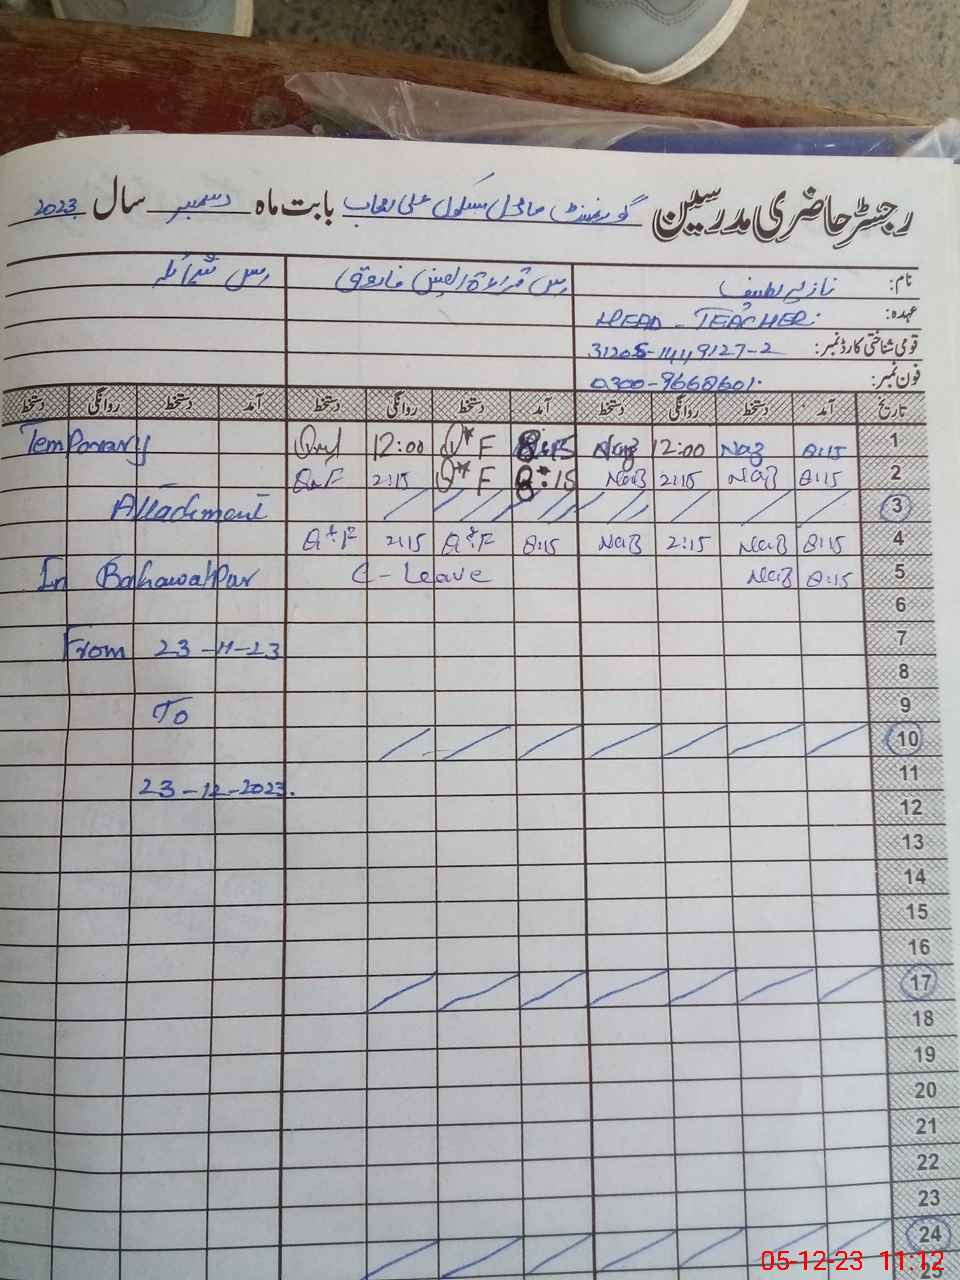 رجسٹر حاضری مدرسین گورنمنٹ ماڈل سکول بابت ماہ دسمبر سال 2023
نام: نازیہ لطیف مس قراۃ العین فاروق مس شمائلہ
عہدہ: HEAD - TEACHER.
قومی شناختی کارڈ نمبر: 31205-1449127-2
فون نمبر: 0300-9668601.
تاریخ آمد دستخط روانگی دستخط آمد دستخط روانگی دستخط آمد دستخط روانگی دستخط
1 8:15 Naz 12:00 Naz 8:15 Q*F 12:00 Temporary
2 8:15 NaZ 2:15 NaZ 8:15 Q*F 2:15 QuF
3 Attachment
4 8:15 NaZ 2:15 NaZ 8:15 Q*F 2:15 Q*F
5 8:15 NaZ C-Leave In Bahawalpur
6
7 From 23-11-23
8
9 To
10
11 23-12-2023.
12
13
14
15
16
17
18
19
20
21
22
23
24
25
05-12-23 11:12